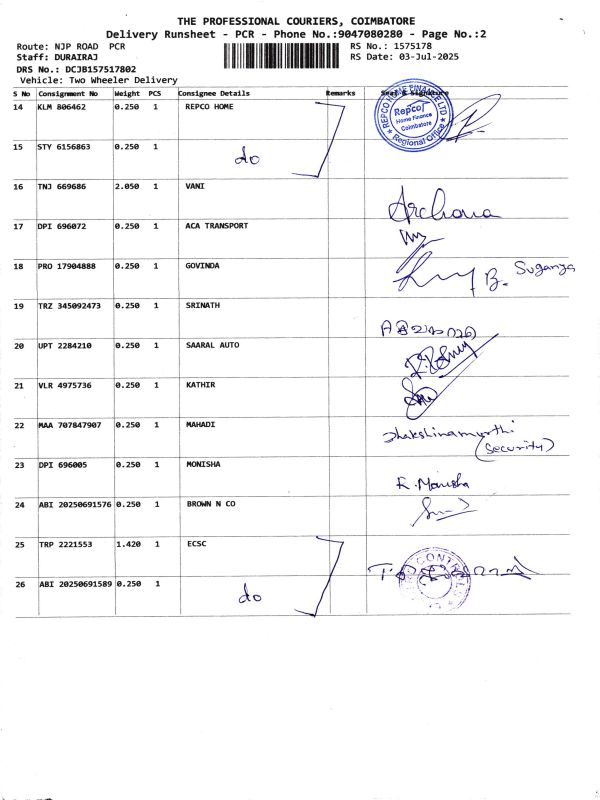 THE PROFESSIONAL COURIERS, COIMBATORE
Delivery Runsheet - PCR - Phone No.:9047080280 - Page No.:2
Route: NJP ROAD PCR
RS No.: 1575178
Staff: DURAIRAJ
RS Date: 03-Jul-2025
DRS No.: DCJB157517802
Vehicle: Two Wheeler Delivery
S No Consignment No Weight PCS Consignee Details Remarks Seal & Signature
14 KLM 806462 0.250 1 REPCO HOME
REPCO HOME FINANCE LTD
Repco
Home Finance
Coimbatore
Regional Office
15 STY 6156863 0.250 1 do
16 TNJ 669686 2.050 1 VANI Archana
17 DPI 696072 0.250 1 ACA TRANSPORT
18 PRO 17904888 0.250 1 GOVINDA B. Suganya
19 TRZ 345092473 0.250 1 SRINATH
20 UPT 2284210 0.250 1 SAARAL AUTO
21 VLR 4975736 0.250 1 KATHIR
22 MAA 707847907 0.250 1 MAHADI Dhakshinamurthi
(Security)
23 DPI 696005 0.250 1 MONISHA K. Monisha
24 ABI 20250691576 0.250 1 BROWN N CO
25 TRP 2221553 1.420 1 ECSC
26 ABI 20250691589 0.250 1 do